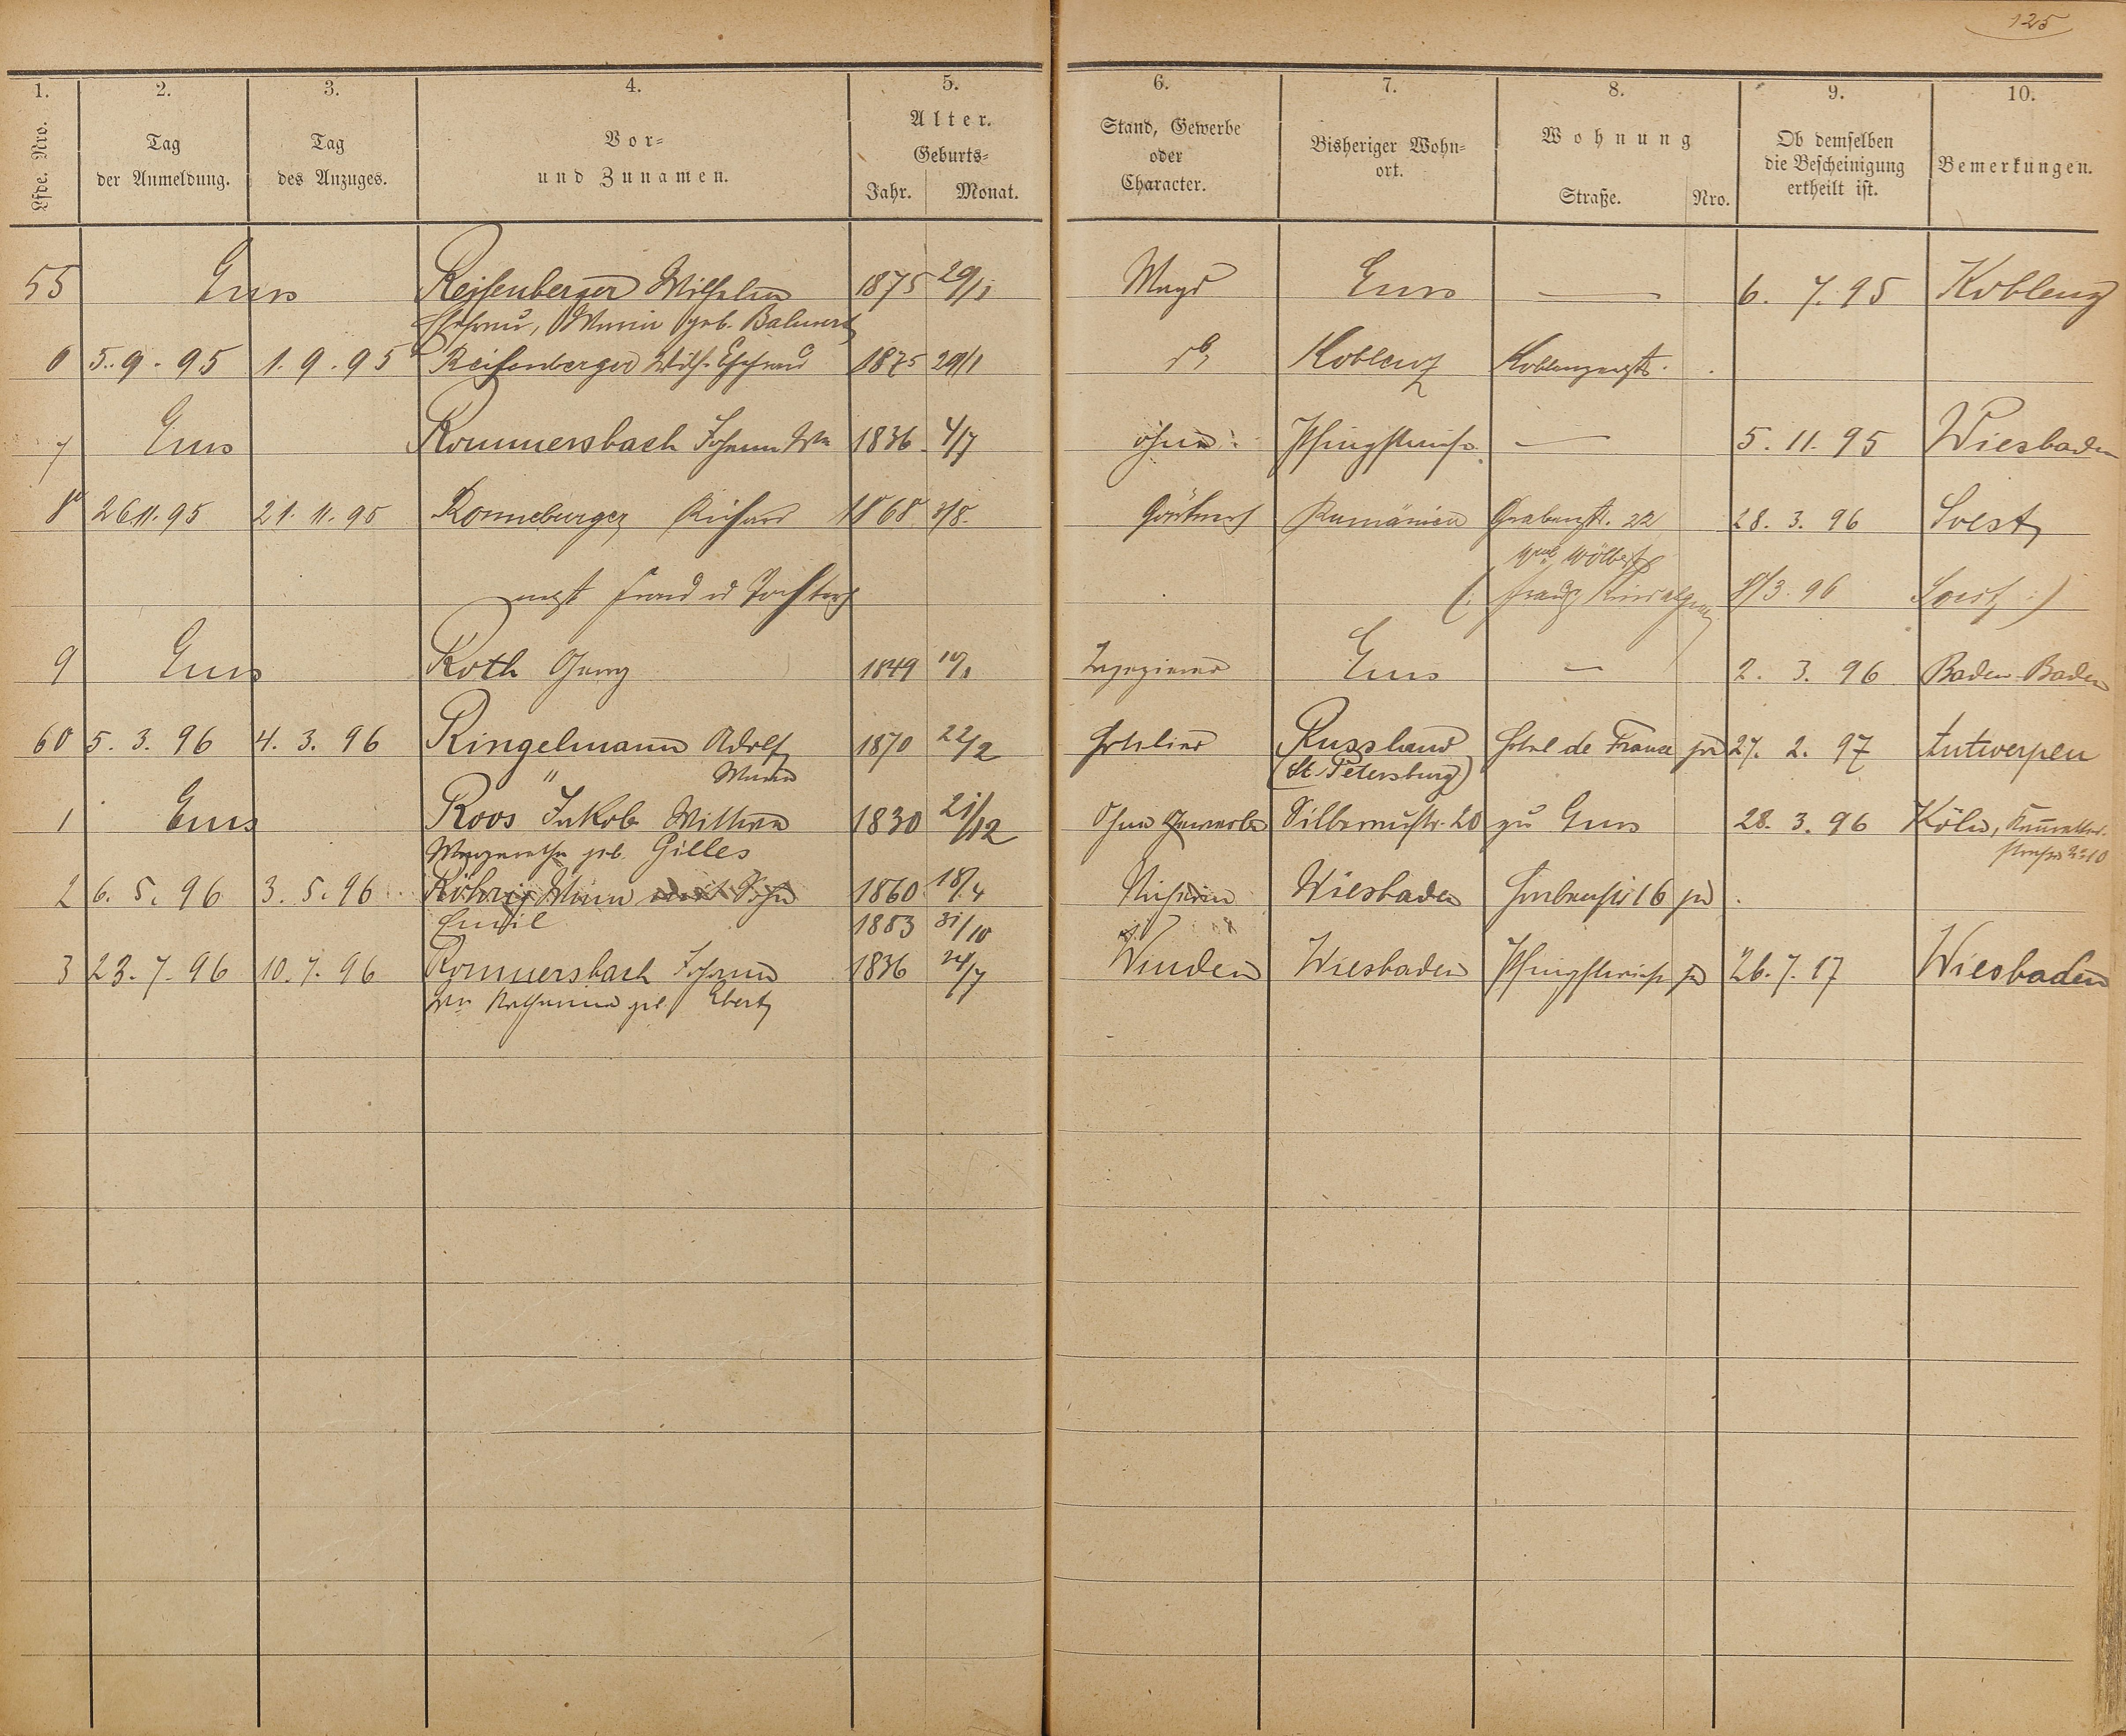 125
1. 2. 3. 4. 5. 6. 7. 8. 9. 10.
Lfde. Nro.
Tag der Anmeldung.
Tag des Anzuges.
Vor= und Zunamen.
Alter.
Geburts=
Jahr. Monat.
Stand, Gewerbe oder Character.
Bisheriger Wohn=ort.
Wohnung
Straße. Nro.
Ob demselben die Bescheinigung ertheilt ist.
Bemerkungen.
55 Ems Reifenberger Wilhelm 1875 29/1 Magd Ems — 6. 7. 95 Koblenz
Ehefrau, Maria geb.
6 5.9.95 1.9.95 Reifenberger Wilh. Ehefrau 1875 29/1 Koblenz Koblenzerstr.
7 Ems Rommersbach Johann Ww 1836 4/7 ohne Pfingstwiese — 5. 11. 95 Wiesbaden
8 26.11.95 21.11.95 Ronneburger Richard 1868 3/8. Gärtner Rumänien Grabenstr. 22 28. 3. 96 Soest
nebst Frau u Tochter 8/3. 96
9 Ems Roth Georg 1849 Tapezierer Ems — 2. 3. 96 Baden-Baden
60 5. 3. 96 4. 3. 96 Ringelmann Adolf 1870 22/2 Hotelier Russland Hotel de France 27. 2. 97 Antwerpen
" (St. Petersburg)
1 Ems Roos Jakob Wittwe 1830 21/12 Ohne Gewerbe Silberaustr. 20 zu Ems 28. 3. 96 Köln,
Margarethe geb. Gilles
2 6. 5. 96 3. 5. 96 Röhrig 1860 18/4 Näherin Wiesbaden
Emil 1883 31/10
3 23. 7. 96 10. 7. 96 Rommersbach Johann 1836 24/7 Winden Wiesbaden Pfingstwiese 26. 7. 17 Wiesbaden
Ww Katharina geb. Ebertz